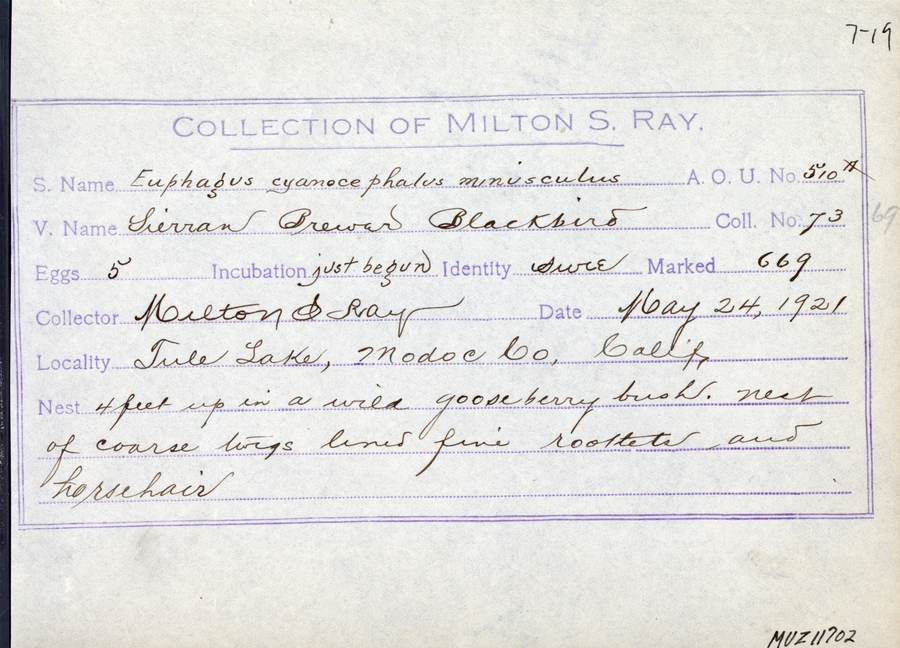 7-19
COLLECTION OF MILTON S. RAY.
S. Name Euphagus cyanocephalus minusculus A. O. U. No. 510a
V. Name Sierran Brewer Blackbird Coll. No. 73
69
Eggs 5 Incubation just begun Identity sure Marked 669
Collector Milton S Ray Date May 24, 1921
Locality Tule Lake, Modoc Co, Calif,
Nest 4 feet up in a wild gooseberry bush. Nest
of coarse twigs lined fine rootlets and
horsehair
MVZ11702